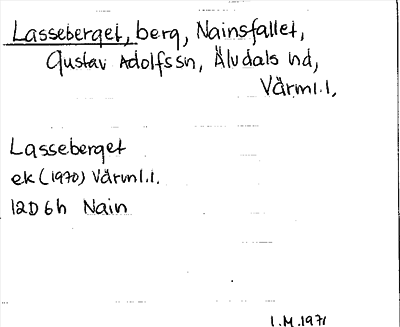 Lasseberget, berg, Nainsfallet,
Gustav Adolfs sn, Älvdals hd,
Värml.l.
Lasseberget
ek (1970) Värml.l.
12D 6h Nain
I.M. 1971